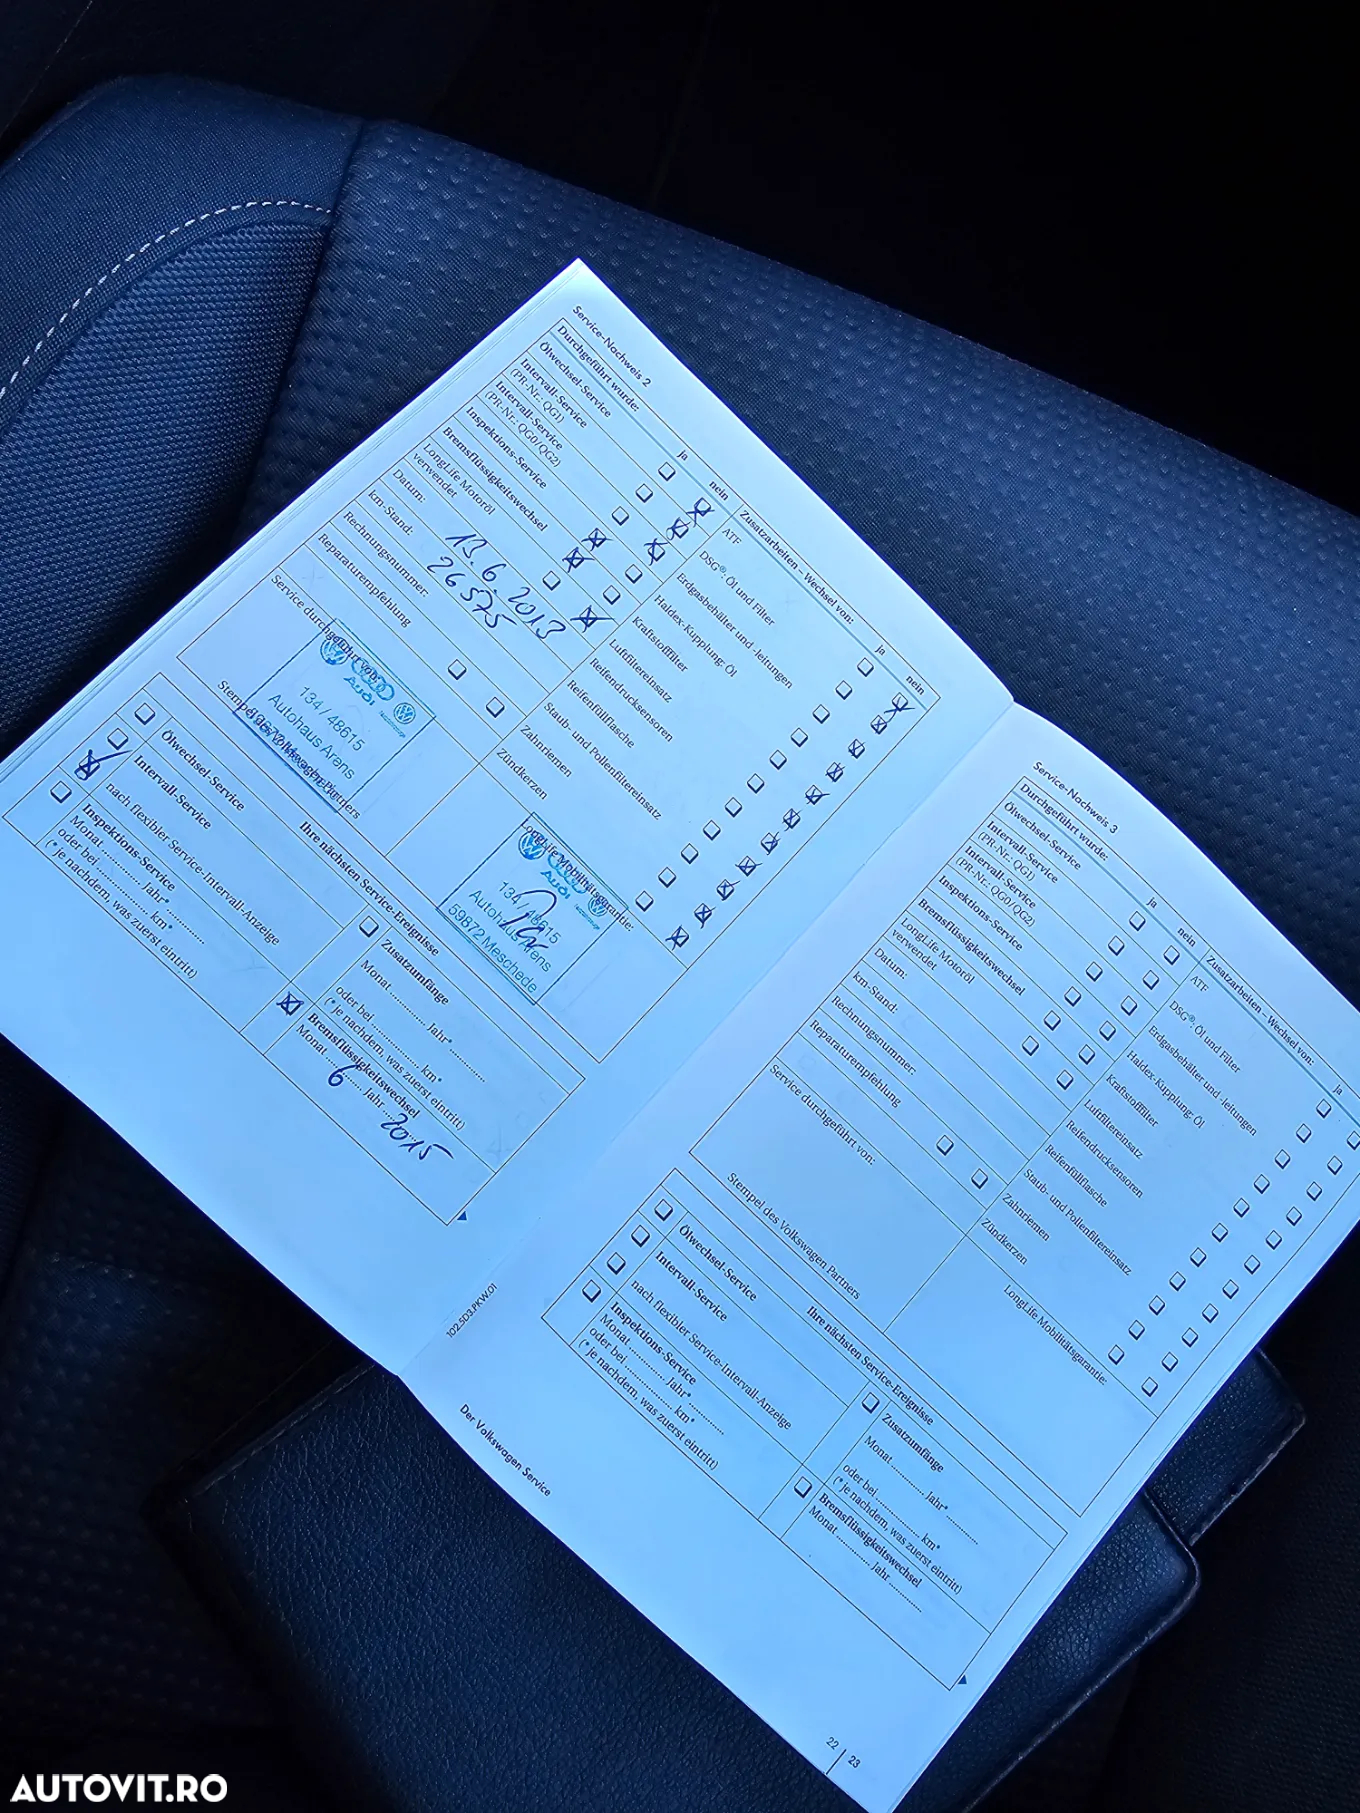 Service-Nachweis 2
Durchgeführt wurde:
ja
nein
Ölwechsel-Service
Intervall-Service
(PR-Nr.: QG1)
Intervall-Service
(PR-Nr.: QG0/QG2)
Inspektions-Service
Bremsflüssigkeitswechsel
LongLife Motoröl
verwendet
Datum:
13.6.2013
km-Stand:
26575
Rechnungsnummer:
Reparaturempfehlung
Service durchgeführt von:
Audi
134 / 48615
Autohaus Arens
Stempel des Volkswagen Partners
Zusatzarbeiten – Wechsel von:
ja
nein
ATF
DSG®: Öl und Filter
Erdgasbehälter und -leitungen
Haldex-Kupplung: Öl
Kraftstofffilter
Luftfiltereinsatz
Reifendrucksensoren
Reifenfüllflasche
Staub- und Pollenfiltereinsatz
Zahnriemen
Zündkerzen
LongLife Mobilitätsgarantie:
Audi
134 / 48615
Autohaus Arens
59872 Meschede
Ihre nächsten Service-Ereignisse
Ölwechsel-Service
Intervall-Service
nach flexibler Service-Intervall-Anzeige
Inspektions-Service
Monat ............ Jahr* ............
oder bei ............ km*
(*je nachdem, was zuerst eintritt)
Zusatzumfänge
Monat ............ Jahr* ............
oder bei ............ km*
(*je nachdem, was zuerst eintritt)
Bremsflüssigkeitswechsel
Monat 6 Jahr 2015
102.5D3.PKW.01
Service-Nachweis 3
Durchgeführt wurde:
ja
nein
Ölwechsel-Service
Intervall-Service
(PR-Nr.: QG1)
Intervall-Service
(PR-Nr.: QG0/QG2)
Inspektions-Service
Bremsflüssigkeitswechsel
LongLife Motoröl
verwendet
Datum:
km-Stand:
Rechnungsnummer:
Reparaturempfehlung
Service durchgeführt von:
Stempel des Volkswagen Partners
Zusatzarbeiten – Wechsel von:
ja
ATF
DSG®: Öl und Filter
Erdgasbehälter und -leitungen
Haldex-Kupplung: Öl
Kraftstofffilter
Luftfiltereinsatz
Reifendrucksensoren
Reifenfüllflasche
Staub- und Pollenfiltereinsatz
Zahnriemen
Zündkerzen
LongLife Mobilitätsgarantie:
Ihre nächsten Service-Ereignisse
Ölwechsel-Service
Intervall-Service
nach flexibler Service-Intervall-Anzeige
Inspektions-Service
Monat ............ Jahr* ............
oder bei ............ km*
(*je nachdem, was zuerst eintritt)
Zusatzumfänge
Monat ............ Jahr* ............
oder bei ............ km*
(*je nachdem, was zuerst eintritt)
Bremsflüssigkeitswechsel
Monat ............ Jahr ............
Der Volkswagen Service
22 | 23
AUTOVIT.RO